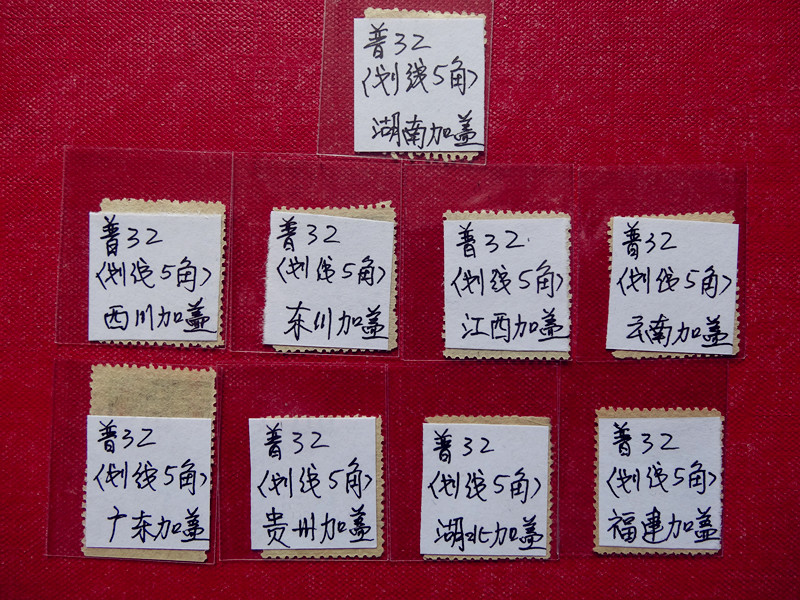 普32
〈划线5角〉
湖南加盖
普32
〈划线5角〉
西川加盖
普32
〈划线5角〉
东川加盖
普32
〈划线5角〉
江西加盖
普32
〈划线5角〉
云南加盖
普32
〈划线5角〉
广东加盖
普32
〈划线5角〉
贵州加盖
普32
〈划线5角〉
湖北加盖
普32
〈划线5角〉
福建加盖